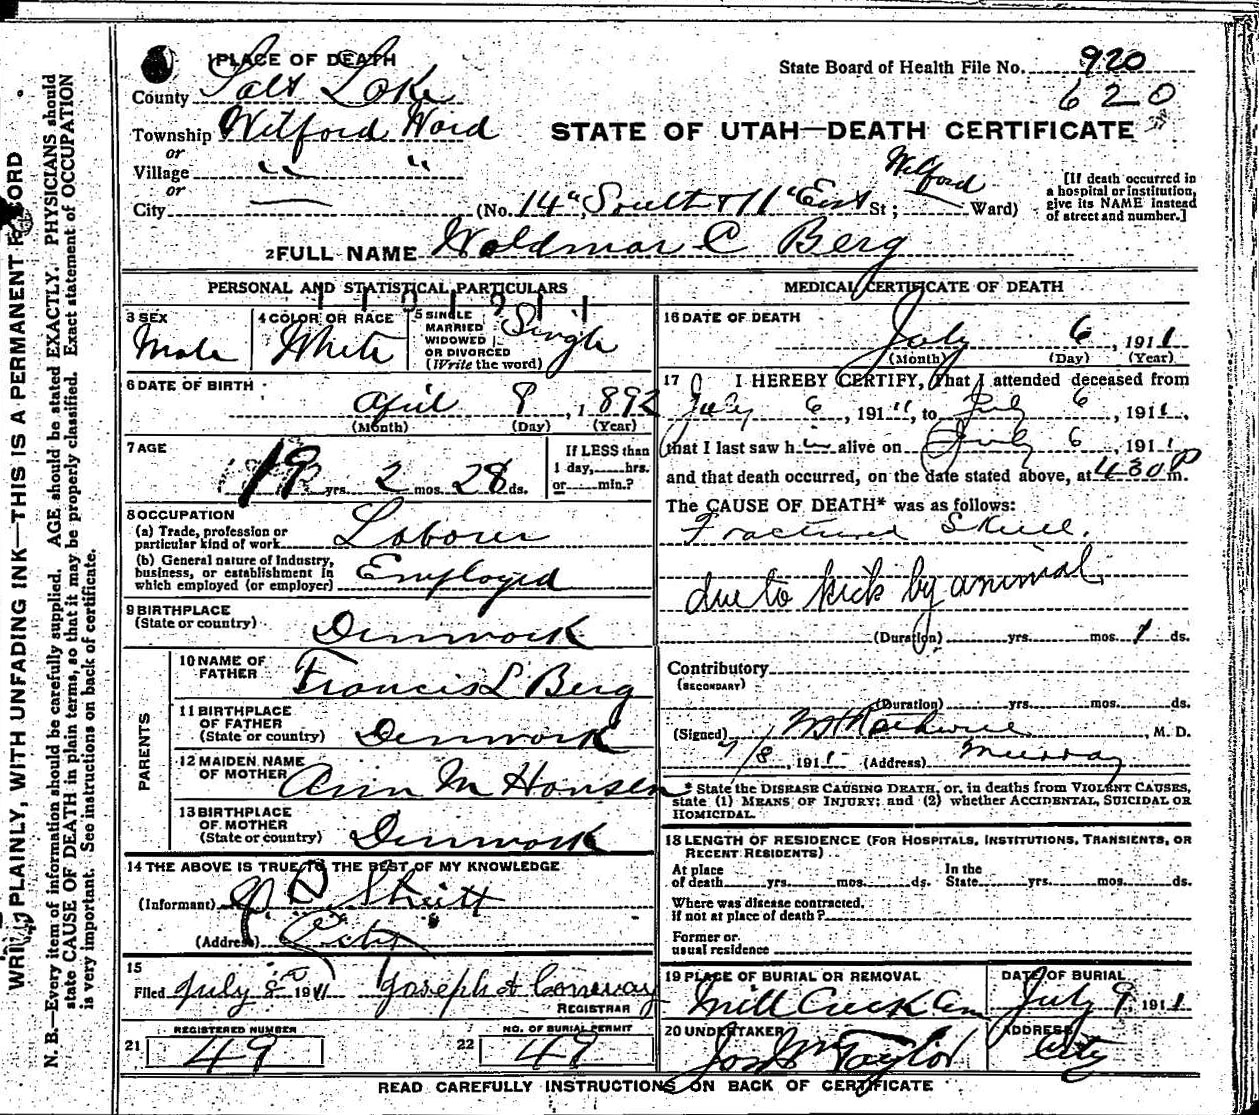 WRITE PLAINLY, WITH UNFADING INK—THIS IS A PERMANENT RECORD
N. B.—Every item of information should be carefully supplied. AGE should be stated EXACTLY. PHYSICIANS should
state CAUSE OF DEATH in plain terms, so that it may be properly classified. Exact statement of OCCUPATION
is very important. See instructions on back of certificate.
1 PLACE OF DEATH
State Board of Health File No. 920
County Salt Lake
620
Township Wilford Ward
STATE OF UTAH—DEATH CERTIFICATE
or
Village " "
or
City —
(No. 14" South & 11" East St; Wilford Ward)
[If death occurred in
a hospital or institution,
give its NAME instead
of street and number.]
2 FULL NAME Waldmar C Berg
PERSONAL AND STATISTICAL PARTICULARS
3 SEX Male
4 COLOR OR RACE White
5 SINGLE
MARRIED
WIDOWED
OR DIVORCED
(Write the word)
Single
6 DATE OF BIRTH
April 8, 1892
(Month) (Day) (Year)
7 AGE
19 yrs. 2 mos. 28 ds.
If LESS than
1 day, hrs.
or min.?
8 OCCUPATION
(a) Trade, profession or
particular kind of work Laborer
(b) General nature of Industry,
business, or establishment in
which employed (or employer) Employed
9 BIRTHPLACE
(State or country) Denmark
PARENTS
10 NAME OF
FATHER Francis L Berg
11 BIRTHPLACE
OF FATHER
(State or country) Denmark
12 MAIDEN NAME
OF MOTHER Ann M Hansen
13 BIRTHPLACE
OF MOTHER
(State or country) Denmark
14 THE ABOVE IS TRUE TO THE BEST OF MY KNOWLEDGE
(Informant)
(Address) City
15
Filed July 8 1911 Joseph A Conway
REGISTRAR
REGISTERED NUMBER
21 49
NO. OF BURIAL PERMIT
22 49
MEDICAL CERTIFICATE OF DEATH
16 DATE OF DEATH
July 6, 1911
(Month) (Day) (Year)
17 I HEREBY CERTIFY, That I attended deceased from
July 6, 1911, to July 6, 1911,
that I last saw him alive on July 6, 1911
and that death occurred, on the date stated above, at 430 P m.
The CAUSE OF DEATH* was as follows:
Fractured Skull.
due to kick by animal
(Duration) yrs. mos. 1 ds.
Contributory
(SECONDARY)
(Duration) yrs. mos. ds.
(Signed) M. D.
7/8, 1911 (Address) Murray
* State the DISEASE CAUSING DEATH, or, in deaths from VIOLENT CAUSES,
state (1) MEANS OF INJURY; and (2) whether ACCIDENTAL, SUICIDAL OR
HOMICIDAL.
18 LENGTH OF RESIDENCE (FOR HOSPITALS, INSTITUTIONS, TRANSIENTS, OR
RECENT RESIDENTS)
At place
of death yrs. mos. ds.
In the
State yrs. mos. ds.
Where was disease contracted.
If not at place of death?
Former or
usual residence
19 PLACE OF BURIAL OR REMOVAL
Mill Creek Cem
DATE OF BURIAL
July 9, 1911
20 UNDERTAKER
Jos Wm Taylor
ADDRESS
City
READ CAREFULLY INSTRUCTIONS ON BACK OF CERTIFICATE